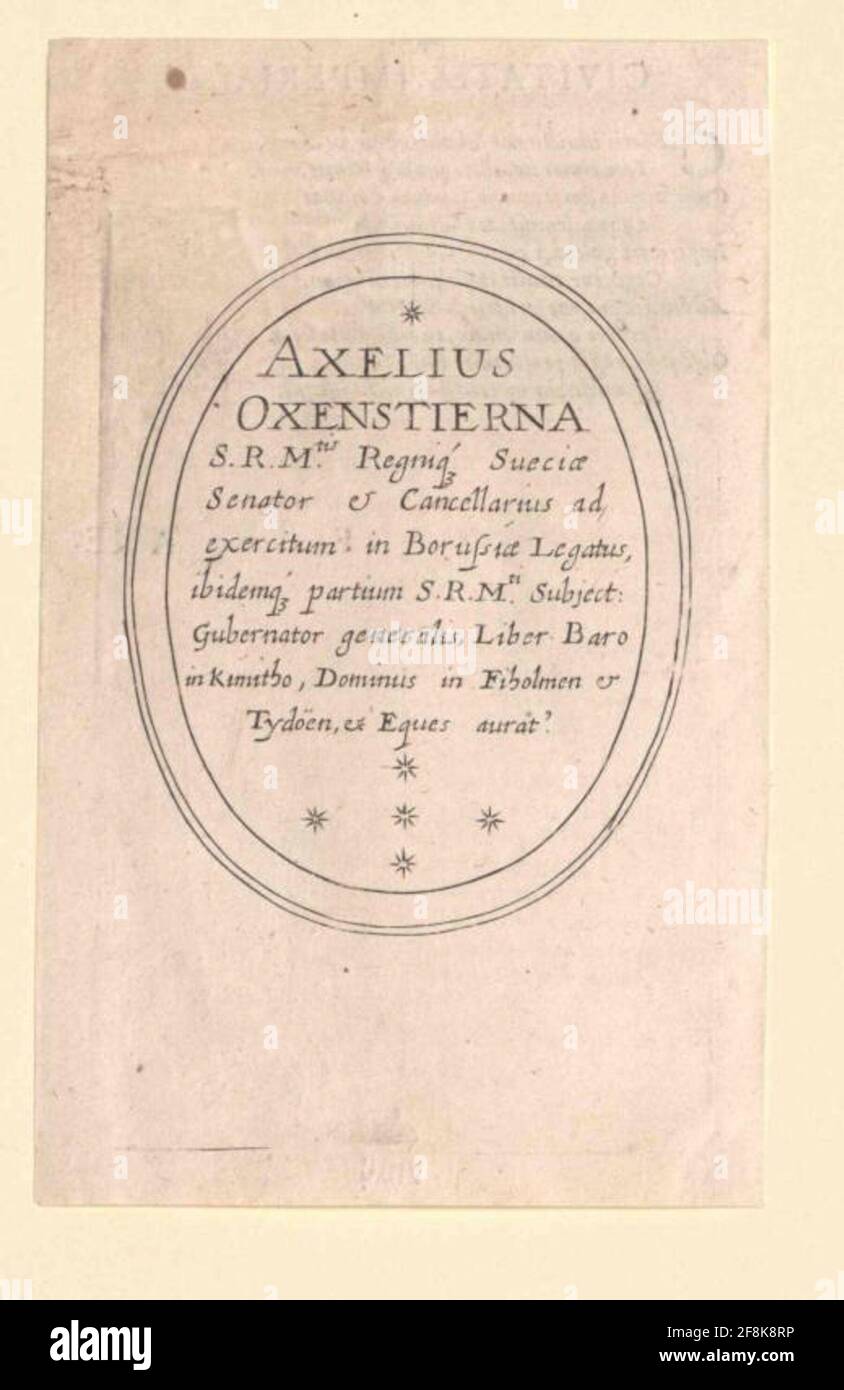 CIVITATIS IMPERIA
AXELIUS
OXENSTIERNA
S.R.M.tis Regniq́ꝫ Sueciæ
Senator & Cancellarius ad
exercitum in Boruſsiæ Legatus,
ibidemq́ꝫ partium S.R.M.ti Subject:
Gubernator generalis, Liber Baro
in Kimitho, Dominus in Fiholmen &
Tydöen, & Eques aurat?
alamy
Image ID: 2F8K8RP
www.alamy.com